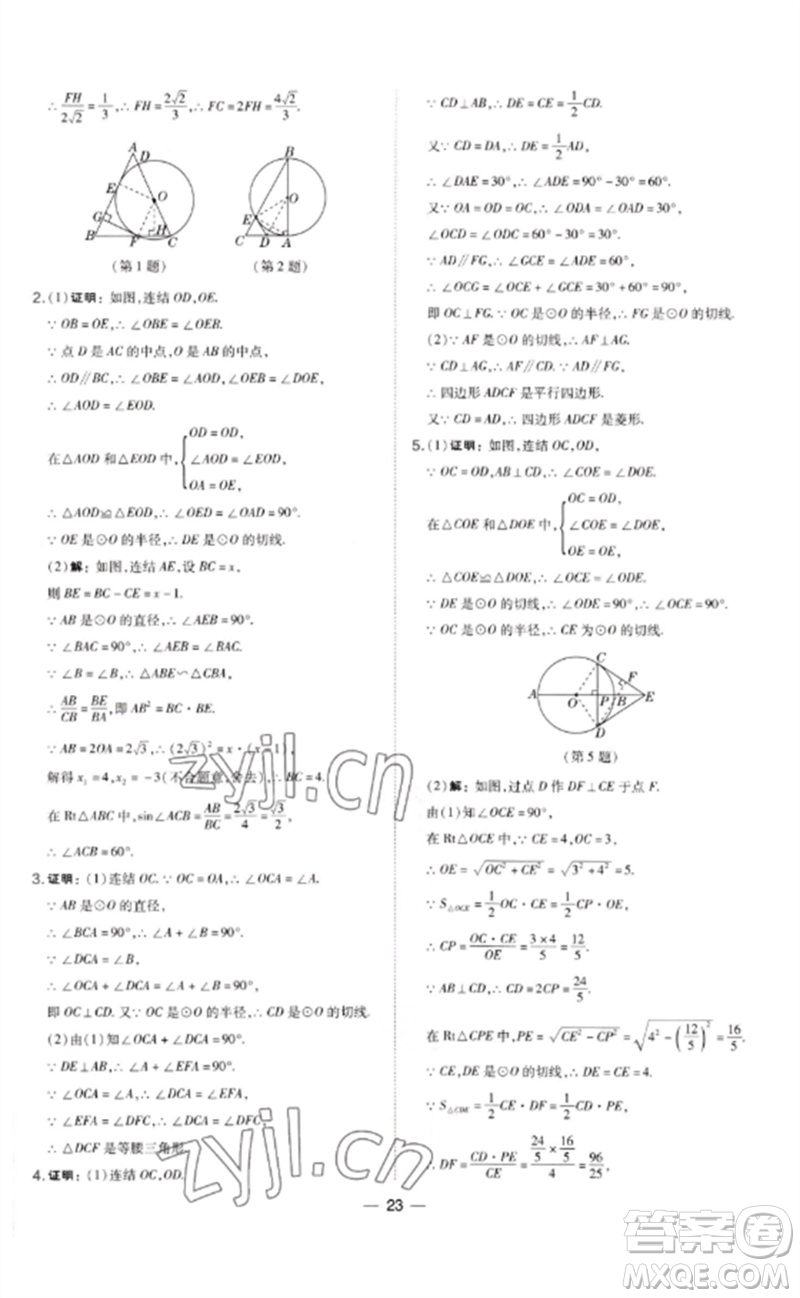 ∴ FH/2√2 = 1/3, ∴ FH = 2√2/3, ∴ FC = 2FH = 4√2/3.
A D E O G B F H C
B O E C D A
(第1题) (第2题)
2. (1) 证明: 如图, 连结 OD, OE.
∵ OB = OE, ∴ ∠OBE = ∠OEB.
∵ 点 D 是 AC 的中点, O 是 AB 的中点,
∴ OD∥BC, ∴ ∠OBE = ∠AOD, ∠OEB = ∠DOE,
∴ ∠AOD = ∠EOD.
在△AOD 和△EOD 中, { OD = OD, ∠AOD = ∠EOD, OA = OE,
∴ △AOD≌△EOD, ∴ ∠OED = ∠OAD = 90°.
∵ OE 是⊙O 的半径, ∴ DE 是⊙O 的切线.
(2) 解: 如图, 连结 AE, 设 BC = x,
则 BE = BC − CE = x − 1.
∵ AB 是⊙O 的直径, ∴ ∠AEB = 90°.
∵ ∠BAC = 90°, ∴ ∠AEB = ∠BAC.
∵ ∠B = ∠B, ∴ △ABE∽△CBA,
∴ AB/CB = BE/BA, 即 AB² = BC · BE.
∵ AB = 2OA = 2√3, ∴ (2√3)² = x · (x − 1),
解得 x₁ = 4, x₂ = −3(不合题意, 舍去), ∴ BC = 4.
在 Rt△ABC 中, sin∠ACB = AB/BC = 2√3/4 = √3/2,
∴ ∠ACB = 60°.
3. 证明: (1) 连结 OC. ∵ OC = OA, ∴ ∠OCA = ∠A.
∵ AB 是⊙O 的直径,
∴ ∠BCA = 90°, ∴ ∠A + ∠B = 90°.
∵ ∠DCA = ∠B,
∴ ∠OCA + ∠DCA = ∠OCD = 90°,
即 OC⊥CD. 又∵ OC 是⊙O 的半径, ∴ CD 是⊙O 的切线.
(2) 由(1)知∠OCA + ∠DCA = 90°.
∵ DE⊥AB, ∴ ∠A + ∠EFA = 90°.
∵ ∠OCA = ∠A, ∴ ∠DCA = ∠EFA.
∵ ∠EFA = ∠DFC, ∴ ∠DCA = ∠DFC,
∴ △DCF 是等腰三角形.
4. 证明: (1) 连结 OC, OD.
∵ CD⊥AB, ∴ DE = CE = 1/2 CD.
又∵ CD = DA, ∴ DE = 1/2 AD,
∴ ∠DAE = 30°, ∴ ∠ADE = 90° − 30° = 60°.
又∵ OA = OD = OC, ∴ ∠ODA = ∠OAD = 30°,
∠OCD = ∠ODE = 60° − 30° = 30°.
∵ AD∥FG, ∴ ∠DCG = ∠ADE = 60°,
∴ ∠OCG = ∠OCE + ∠DCG = 30° + 60° = 90°,
即 OC⊥FG. ∵ OC 是⊙O 的半径, ∴ FG 是⊙O 的切线.
(2) ∵ AF 是⊙O 的切线, ∴ AF⊥AG.
∵ CD⊥AG, ∴ AF∥CD. ∵ AD∥FG,
∴ 四边形 ADCF 是平行四边形.
又∵ CD = AD, ∴ 四边形 ADCF 是菱形.
5. (1) 证明: 如图, 连结 OC, OD,
∵ OC = OD, AB⊥CD, ∴ ∠COE = ∠DOE.
在△COE 和△DOE 中, { OC = OD, ∠COE = ∠DOE, OE = OE,
∴ △COE≌△DOE, ∴ ∠OCE = ∠ODE.
∵ DE 是⊙O 的切线, ∴ ∠ODE = 90°, ∴ ∠OCE = 90°.
∵ OC 是⊙O 的半径, ∴ CE 为⊙O 的切线.
C F A O P B E D
(第5题)
(2) 解: 如图, 过点 D 作 DF⊥CE 于点 F.
由(1)知∠OCE = 90°,
在 Rt△OCE 中, ∵ CE = 4, OC = 3,
∴ OE = √(OC² + CE²) = √(3² + 4²) = 5.
∵ S△OCE = 1/2 OC · CE = 1/2 CP · OE,
∴ CP = OC · CE/OE = 3 × 4/5 = 12/5.
∵ AB⊥CD, ∴ CD = 2CP = 24/5.
在 Rt△CPE 中, PE = √(CE² − CP²) = √(4² − (12/5)²) = 16/5
∵ CE, DE 是⊙O 的切线, ∴ DE = CE = 4.
∵ S△CDE = 1/2 CE · DF = 1/2 CD · PE,
∴ DF = CD · PE/CE = (24/5 × 16/5)/4 = 96/25.
— 23 —
zyjl.cn
zyjl.cn
答案圈
MXQE.COM